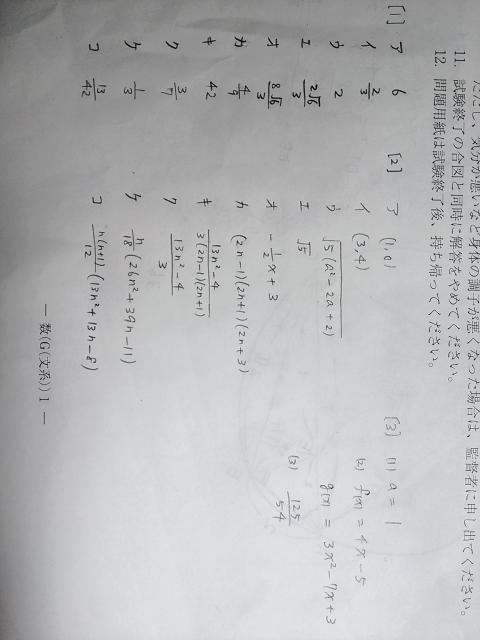 ただし、気分が悪いなど身体の調子が悪くなった場合は、監督者に申し出てください。
11. 試験終了の合図と同時に解答をやめてください。
12. 問題用紙は試験終了後、持ち帰ってください。
[1] ア 6
イ 2/3
ウ 2
エ 2√6/3
オ 8√6/3
カ 4/9
キ 42
ク 3/7
ケ 1/3
コ 13/42
[2] ア (1, 0)
イ (3, 4)
ウ √5(a²-2a+2)
エ √5
オ -1/2x+3
カ (2n-1)(2n+1)(2n+3)
キ 13n²-4/3(2n-1)(2n+1)
ク 13n²-4/3
ケ n/18(26n²+39n-11)
コ n(n+1)/12(13n²+13n-8)
[3] (1) a = 1
(2) f(x) = 4x-5
g(x) = 3x²-7x+3
(3) 125/54
— 数(G(文系)) 1 —